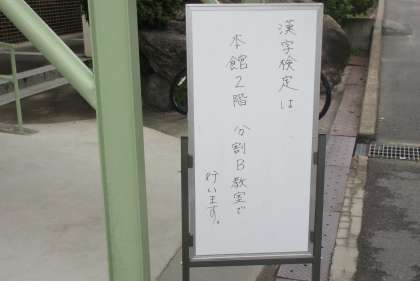 漢字検定は
本館2階 分割B教室で
行います。